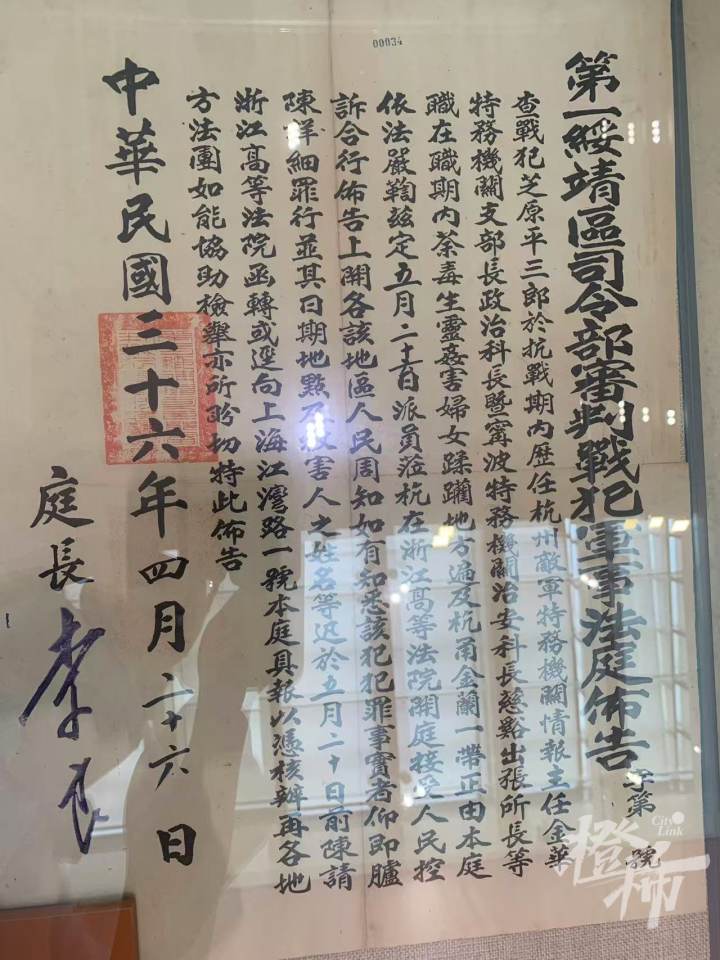 00034
第一綏靖區司令部審判戰犯軍事法庭佈告
字第 號
查戰犯芝原平三郎於抗戰期內歷任杭州敵軍特務機關情報主任金華
特務機關支部長政治科長暨甯波特務機關治安科長慈谿出張所長等
職在職期內荼毒生靈姦害婦女蹂躪地方遍及杭甬金蘭一帶正由本庭
依法嚴鞫茲定五月二十六日派員蒞杭在浙江高等法院開庭接受人民控
訴合行佈告上開各該地區人民周知如有知悉該犯犯罪事實者仰即臚
陳詳細罪行並其日期地點及被害人之姓名等迟於五月二十日前陳請
浙江高等法院函轉或逕向上海江灣路一號本庭具報以憑核辦再各地
方法團如能協助檢舉亦所盼切特此佈告
中華民國三十六年四月二十六日
庭長
李良
橙柿
City Link